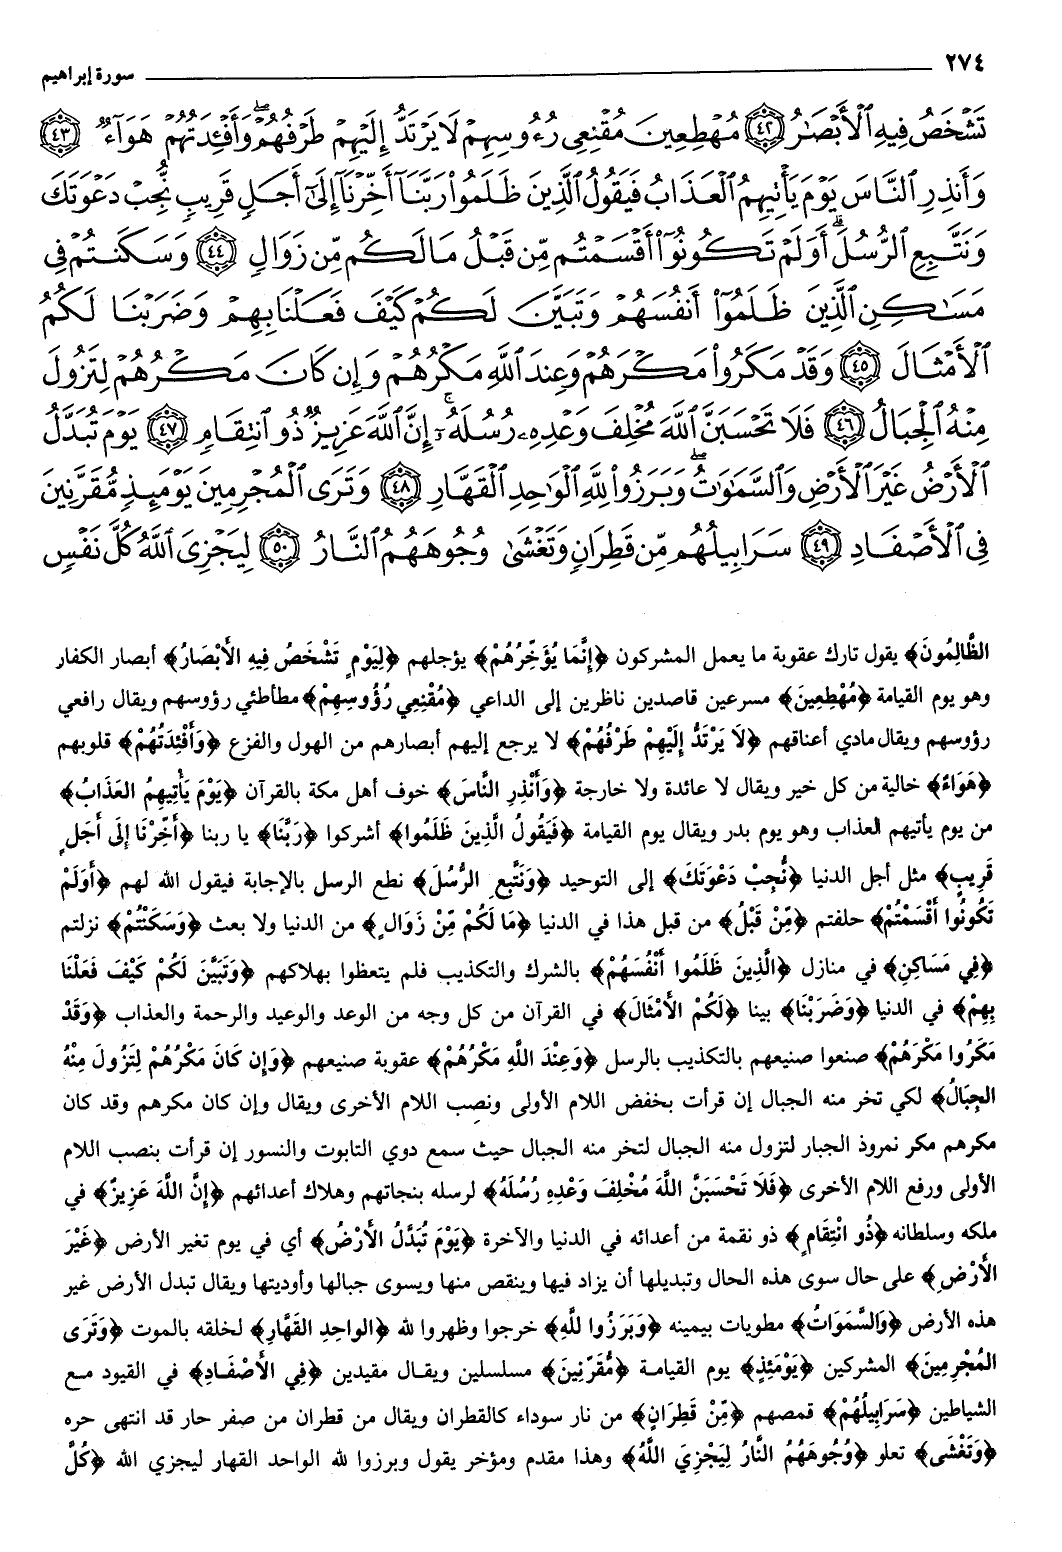 ٢٧٤ سورة إبراهيم
تَشْخَصُ فِيهِ ٱلْأَبْصَٰرُ ٤٢ مُهْطِعِينَ مُقْنِعِى رُءُوسِهِمْ لَا يَرْتَدُّ إِلَيْهِمْ طَرْفُهُمْ ۖ وَأَفْـِٔدَتُهُمْ هَوَآءٌ ٤٣
وَأَنذِرِ ٱلنَّاسَ يَوْمَ يَأْتِيهِمُ ٱلْعَذَابُ فَيَقُولُ ٱلَّذِينَ ظَلَمُوا۟ رَبَّنَآ أَخِّرْنَآ إِلَىٰٓ أَجَلٍ قَرِيبٍ نُّجِبْ دَعْوَتَكَ
وَنَتَّبِعِ ٱلرُّسُلَ ۗ أَوَلَمْ تَكُونُوٓا۟ أَقْسَمْتُم مِّن قَبْلُ مَا لَكُم مِّن زَوَالٍ ٤٤ وَسَكَنتُمْ فِى
مَسَٰكِنِ ٱلَّذِينَ ظَلَمُوٓا۟ أَنفُسَهُمْ وَتَبَيَّنَ لَكُمْ كَيْفَ فَعَلْنَا بِهِمْ وَضَرَبْنَا لَكُمُ
ٱلْأَمْثَالَ ٤٥ وَقَدْ مَكَرُوا۟ مَكْرَهُمْ وَعِندَ ٱللَّهِ مَكْرُهُمْ وَإِن كَانَ مَكْرُهُمْ لِتَزُولَ
مِنْهُ ٱلْجِبَالُ ٤٦ فَلَا تَحْسَبَنَّ ٱللَّهَ مُخْلِفَ وَعْدِهِۦ رُسُلَهُۥٓ ۗ إِنَّ ٱللَّهَ عَزِيزٌ ذُو ٱنتِقَامٍ ٤٧ يَوْمَ تُبَدَّلُ
ٱلْأَرْضُ غَيْرَ ٱلْأَرْضِ وَٱلسَّمَٰوَٰتُ ۖ وَبَرَزُوا۟ لِلَّهِ ٱلْوَٰحِدِ ٱلْقَهَّارِ ٤٨ وَتَرَى ٱلْمُجْرِمِينَ يَوْمَئِذٍ مُّقَرَّنِينَ
فِى ٱلْأَصْفَادِ ٤٩ سَرَابِيلُهُم مِّن قَطِرَانٍ وَتَغْشَىٰ وُجُوهَهُمُ ٱلنَّارُ ٥٠ لِيَجْزِىَ ٱللَّهُ كُلَّ نَفْسٍ
الظَّالِمُونَ﴾ يقول تارك عقوبة ما يعمل المشركون ﴿إِنَّمَا يُؤَخِّرُهُمْ﴾ يؤجلهم ﴿لِيَوْمٍ تَشْخَصُ فِيهِ الأَبْصَارُ﴾ أبصار الكفار
وهو يوم القيامة ﴿مُهْطِعِينَ﴾ مسرعين قاصدين ناظرين إلى الداعي ﴿مُقْنِعِي رُؤُوسِهِمْ﴾ مطأطئي رؤوسهم ويقال رافعي
رؤوسهم ويقال مادي أعناقهم ﴿لَا يَرْتَدُّ إِلَيْهِمْ طَرْفُهُمْ﴾ لا يرجع إليهم أبصارهم من الهول والفزع ﴿وَأَفْئِدَتُهُمْ﴾ قلوبهم
﴿هَوَاءٌ﴾ خالية من كل خير ويقال لا عائدة ولا خارجة ﴿وَأَنْذِرِ النَّاسَ﴾ خوف أهل مكة بالقرآن ﴿يَوْمَ يَأْتِيهِمُ العَذَابُ﴾
من يوم يأتيهم العذاب وهو يوم بدر ويقال يوم القيامة ﴿فَيَقُولُ الَّذِينَ ظَلَمُوا﴾ أشركوا ﴿رَبَّنَا﴾ يا ربنا ﴿أَخِّرْنَا إِلَى أَجَلٍ
قَرِيبٍ﴾ مثل أجل الدنيا ﴿نُّجِبْ دَعْوَتَكَ﴾ إلى التوحيد ﴿وَنَتَّبِعِ الرُّسُلَ﴾ نطع الرسل بالإجابة فيقول الله لهم ﴿أَوَلَمْ
تَكُونُوا أَقْسَمْتُمْ﴾ حلفتم ﴿مِّنْ قَبْلُ﴾ من قبل هذا في الدنيا ﴿مَا لَكُمْ مِّنْ زَوَالٍ﴾ من الدنيا ولا بعث ﴿وَسَكَنْتُمْ﴾ نزلتم
﴿فِي مَسَاكِنِ﴾ في منازل ﴿الَّذِينَ ظَلَمُوا أَنْفُسَهُمْ﴾ بالشرك والتكذيب فلم يتعظوا بهلاكهم ﴿وَتَبَيَّنَ لَكُمْ كَيْفَ فَعَلْنَا
بِهِمْ﴾ في الدنيا ﴿وَضَرَبْنَا﴾ بينا ﴿لَكُمْ الأَمْثَالَ﴾ في القرآن من كل وجه من الوعد والوعيد والرحمة والعذاب ﴿وَقَدْ
مَكَرُوا مَكْرَهُمْ﴾ صنعوا صنيعهم بالتكذيب بالرسل ﴿وَعِنْدَ اللَّهِ مَكْرُهُمْ﴾ عقوبة صنيعهم ﴿وَإِن كَانَ مَكْرُهُمْ لِتَزُولَ مِنْهُ
الجِبَالُ﴾ لكي تخر منه الجبال إن قرأت بخفض اللام الأولى ونصِب اللام الأخرى ويقال وإن كان مكرهم وقد كان
مكرهم مكر نمروذ الجبار لتزول منه الجبال لتخر منه الجبال حيث سمع دوي التابوت والنسور إن قرأت بنصب اللام
الأولى ورفع اللام الأخرى ﴿فَلَا تَحْسَبَنَّ اللَّهَ مُخْلِفَ وَعْدِهِ رُسُلَهُ﴾ لرسله بنجاتهم وهلاك أعدائهم ﴿إِنَّ اللَّهَ عَزِيزٌ﴾ في
ملكه وسلطانه ﴿ذُو انْتِقَامٍ﴾ ذو نقمة من أعدائه في الدنيا والآخرة ﴿يَوْمَ تُبَدَّلُ الأَرْضُ﴾ أي في يوم تغير الأرض ﴿غَيْرَ
الأَرْضِ﴾ على حال سوى هذه الحال وتبديلها أن يزاد فيها وينقص منها ويسوى جبالها وأوديتها ويقال تبدل الأرض غير
هذه الأرض ﴿وَالسَّمَوَاتُ﴾ مطويات بيمينه ﴿وَبَرَزُوا للَّهِ﴾ خرجوا وظهروا لله ﴿الوَاحِدِ القَهَّارِ﴾ لخلقه بالموت ﴿وَتَرَى
المُجْرِمِينَ﴾ المشركين ﴿يَوْمَئِذٍ﴾ يوم القيامة ﴿مُّقَرَّنِينَ﴾ مسلسلين ويقال مقيدين ﴿فِي الأَصْفَادِ﴾ في القيود مع
الشياطين ﴿سَرَابِيلُهُمْ﴾ قمصهم ﴿مِّنْ قَطِرَانٍ﴾ من نار سوداء كالقطران ويقال من قطران من صفر حار قد انتهى حره
﴿وَتَغْشَى﴾ تعلو ﴿وُجُوهَهُمُ النَّارُ لِيَجْزِيَ اللَّهُ﴾ وهذا مقدم ومؤخر يقول وبرزوا لله الواحد القهار ليجزي الله ﴿كُلَّ